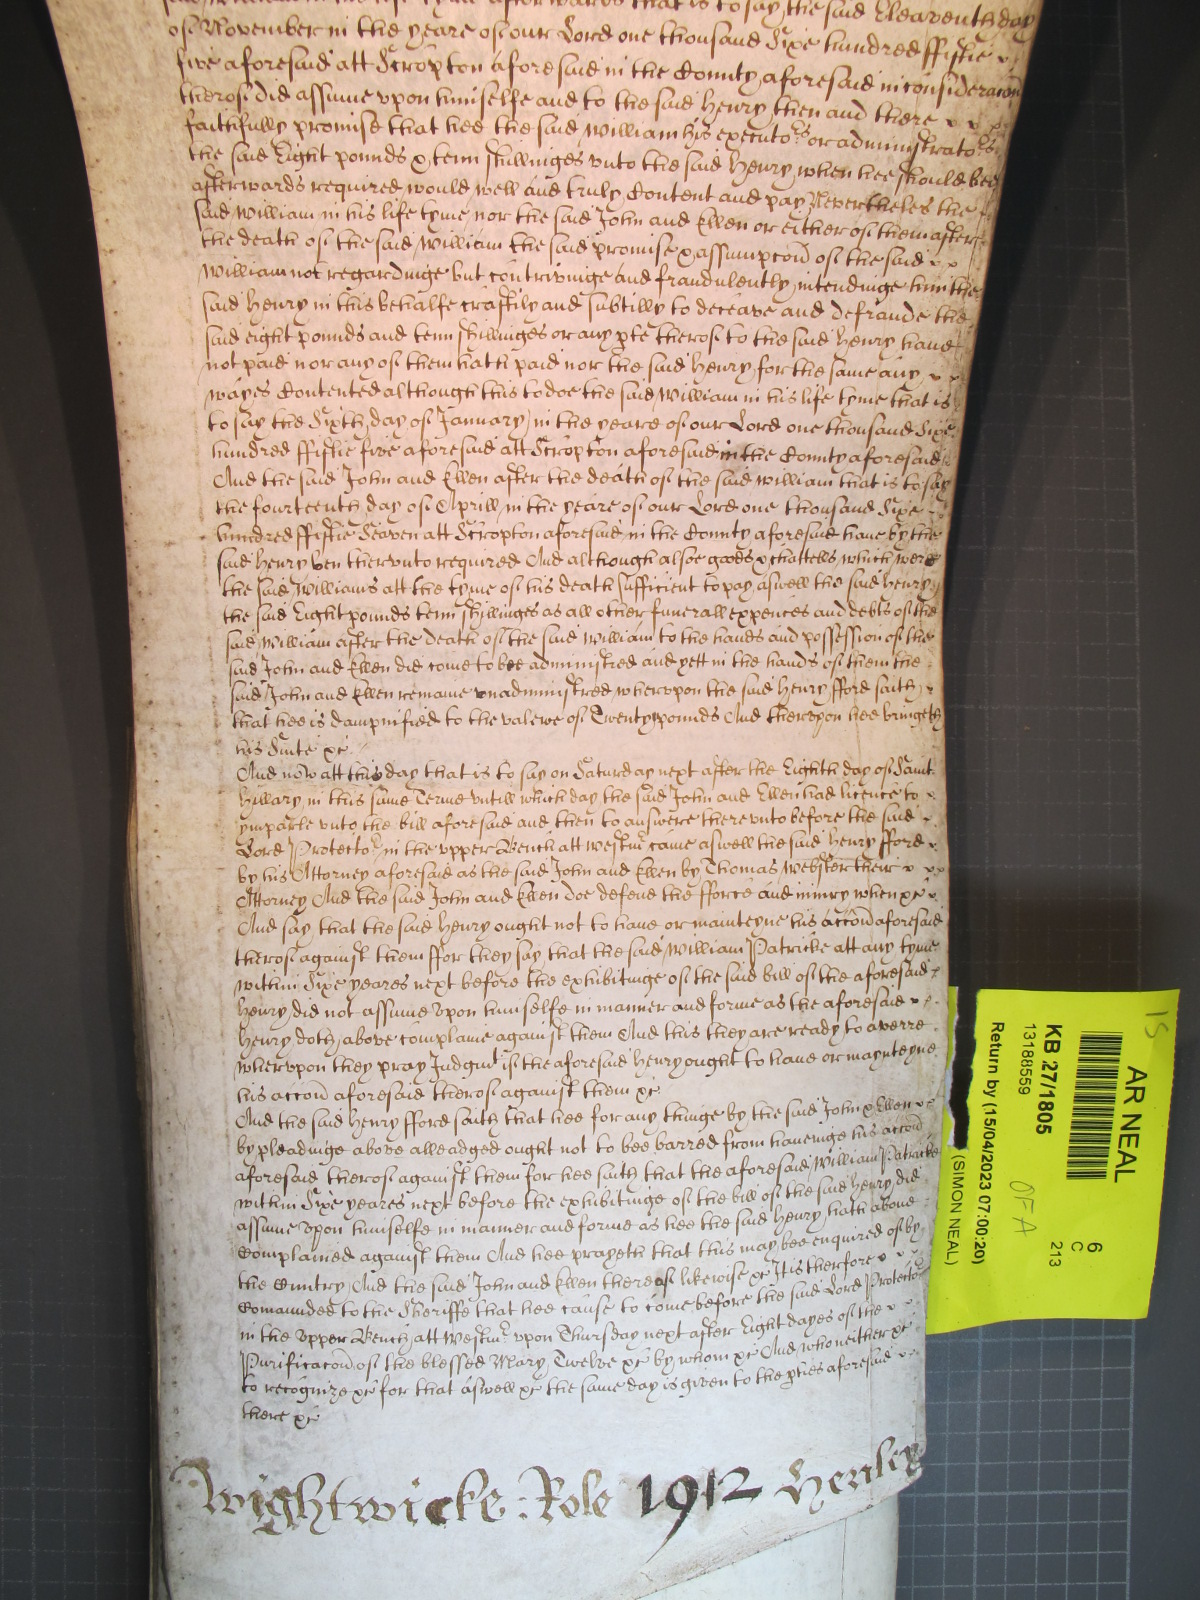 afterwards that is to say the said Eleaventh day
of November in the yeare of our Lord one thousand Sixe hundred ffiftie
five aforesaid att Scropton aforesaid in the County aforesaid in consideracon
therof did assume vpon himselfe and to the said Henry then and there
faithfully promise that hee the said William his executors or administrators
the said Eight pounds & tenn shillinges vnto the said Henry when hee should bee
afterwards required would well and truly Content and pay Nevertheles the
said William in his life tyme nor the said John and Ellen or either of them after
the death of the said William the said promise & assumpcon of the said
William not regardinge but contrivinge and fraudulently intendinge him the
said Henry in this behalfe craftily and subtilly to deceave and defraude the
said eight pounds and tenn shillinges or any pte therof to the said Henry have
not paid nor any of them hath paid nor the said Henry for the same any
wayes Contented although this to doe the said William in his life tyme that is
to say the Sixth day of January in the yeare of our Lord one thousand Sixe
hundred ffiftie five aforesaid att Scropton aforesaid in the County aforesaid
And the said John and Ellen after the death of the said William that is to say
the fourteenth day of Aprill in the yeare of our Lord one thousand Sixe
hundred ffiftie Seaven att Scropton aforesaid in the County aforesaid have by the
said Henry ben thervnto required And although alsoe goods & chattells which were
the said Williams att the tyme of his death sufficient to pay aswell the said Henry
the said Eight pounds tenn shillinges as all other funerall expences and debts of the
said William after the death of the said William to the hands and possession of the
said John and Ellen did come to bee administred and yett in the hands of them the
said John and Ellen remaine vnadministred whervpon the said Henry fford saith
that hee is dampnified to the valewe of Twenty pounds And thervpon hee bringeth
his Suite &c
And now att this day that is to say on Saturday next after the Eighth day of Saint
Hillary in this same Terme vntill which day the said John and Ellen had licence to
ymparle vnto the bill aforesaid and then to answere there vnto before the said
Lord Protector in the vpper Bench att Westmr came aswell the said Henry fford
by his Attorney aforesaid as the said John and Ellen by Thomas Webster their
Attorney And the said John and Ellen doe defend the fforce and iniury when &c
And say that the said Henry ought not to have or mainteyne his accon aforesaid
therof against them ffor they say that the said William Patricke att any tyme
within Sixe yeares next before the exhibitinge of the said bill of the aforesaid
Henry did not assume vpon himselfe in manner and forme as the aforesaid
Henry doth above complaine against them And this they are ready to averre
whervpon they pray Judgmt if the aforesaid Henry ought to have or maynteyne
his accon aforesaid therof against them &c
And the said Henry fford saith that hee for any thinge by the said John & Ellen
by pleadinge above alleadged ought not to bee barred from haveinge his accon
aforesaid therof against them for hee saith that the aforesaid William Patricke
within Sixe yeares next before the exhibitinge of the bill of the said Henry did
assume vpon himselfe in manner and forme as hee the said Henry hath above
Complained against them And hee prayeth that this may bee enquired of by
the Cuntry And the said John and Ellen thereof likewise &c It is therfore
Comaunded to the Sheriffe that hee cause to come before the said Lord Protector
in the vpper Bench att Westmr vpon Thursday next after Eight dayes of the
Purificacon of the blessed Mary Twelve &c by whom &c And who neither &c
to recognize &c for that aswell &c the same day is given to the pties aforesaid
there &c
Wightwicke: Role 1912 Henley
15
AR NEAL
KB 27/1805
13188559
Return by (15/04/2023 07:00:20)
(SIMON NEAL)
6
C
213
OFA